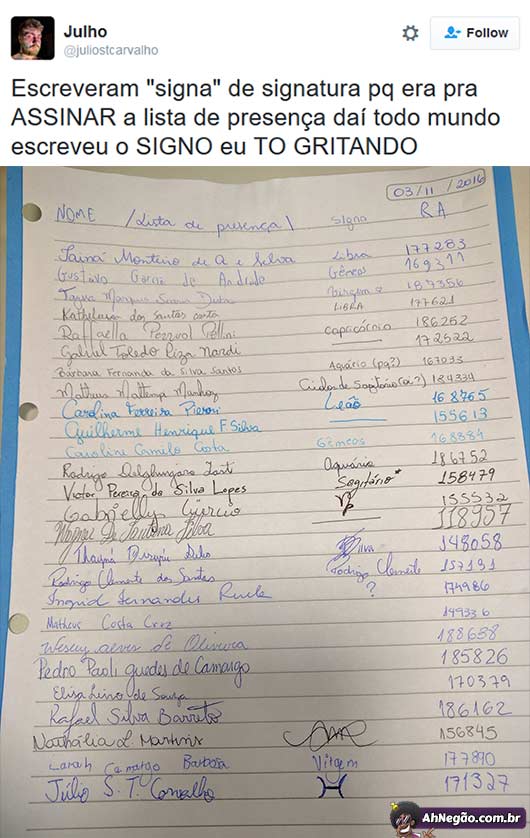 Julho
@juliostcarvalho
Follow
Escreveram "signa" de signatura pq era pra
ASSINAR a lista de presença daí todo mundo
escreveu o SIGNO eu TO GRITANDO
03/11/2016
NOME /Lista de presença/ Signa RA
Tainá Monteiro de A e Silva Libra 177283
Gustavo Garcia de Andrade Gêneos 169311
Virgem 187356
dos Santos costa LIBRA 177621
Raffaella Pezzuol Pellini Capricórnio 186252
Gabriel Toledo Piza Nardi — 172522
Bárbara Fernanda da Silva Santos Aquário (pq?) 167033
Matheus Mattenp Munhoz de Sagitário 184334
Carolina Ferreira Pieroni Leão 168765
Guilherme Henrique F. Silva — 155613
Caroline Camelo Costa Gêmeos 168884
Rodrigo Aquário 186952
Victor Pereira da Silva Lopes Sagitário* 158479
Gabrielly ♑ 155532
Silva — 118957
Thayná Silva 148058
Rodrigo Clemente dos Santos Rodrigo Clemente 157191
Ingrid Fernandes ? 174986
Matheus Costa Cruz 149336
Wesley alves de Oliveira 188638
Pedro Paoli guedes de Camargo 185826
Elisa Lino de Souza 170379
Rafael Silva Barreto 186162
Nathália L. Martins 156845
Larah Camargo Barbosa Virgem 177890
Júlio S. T. Carvalho ♓ 171327
AhNegão.com.br